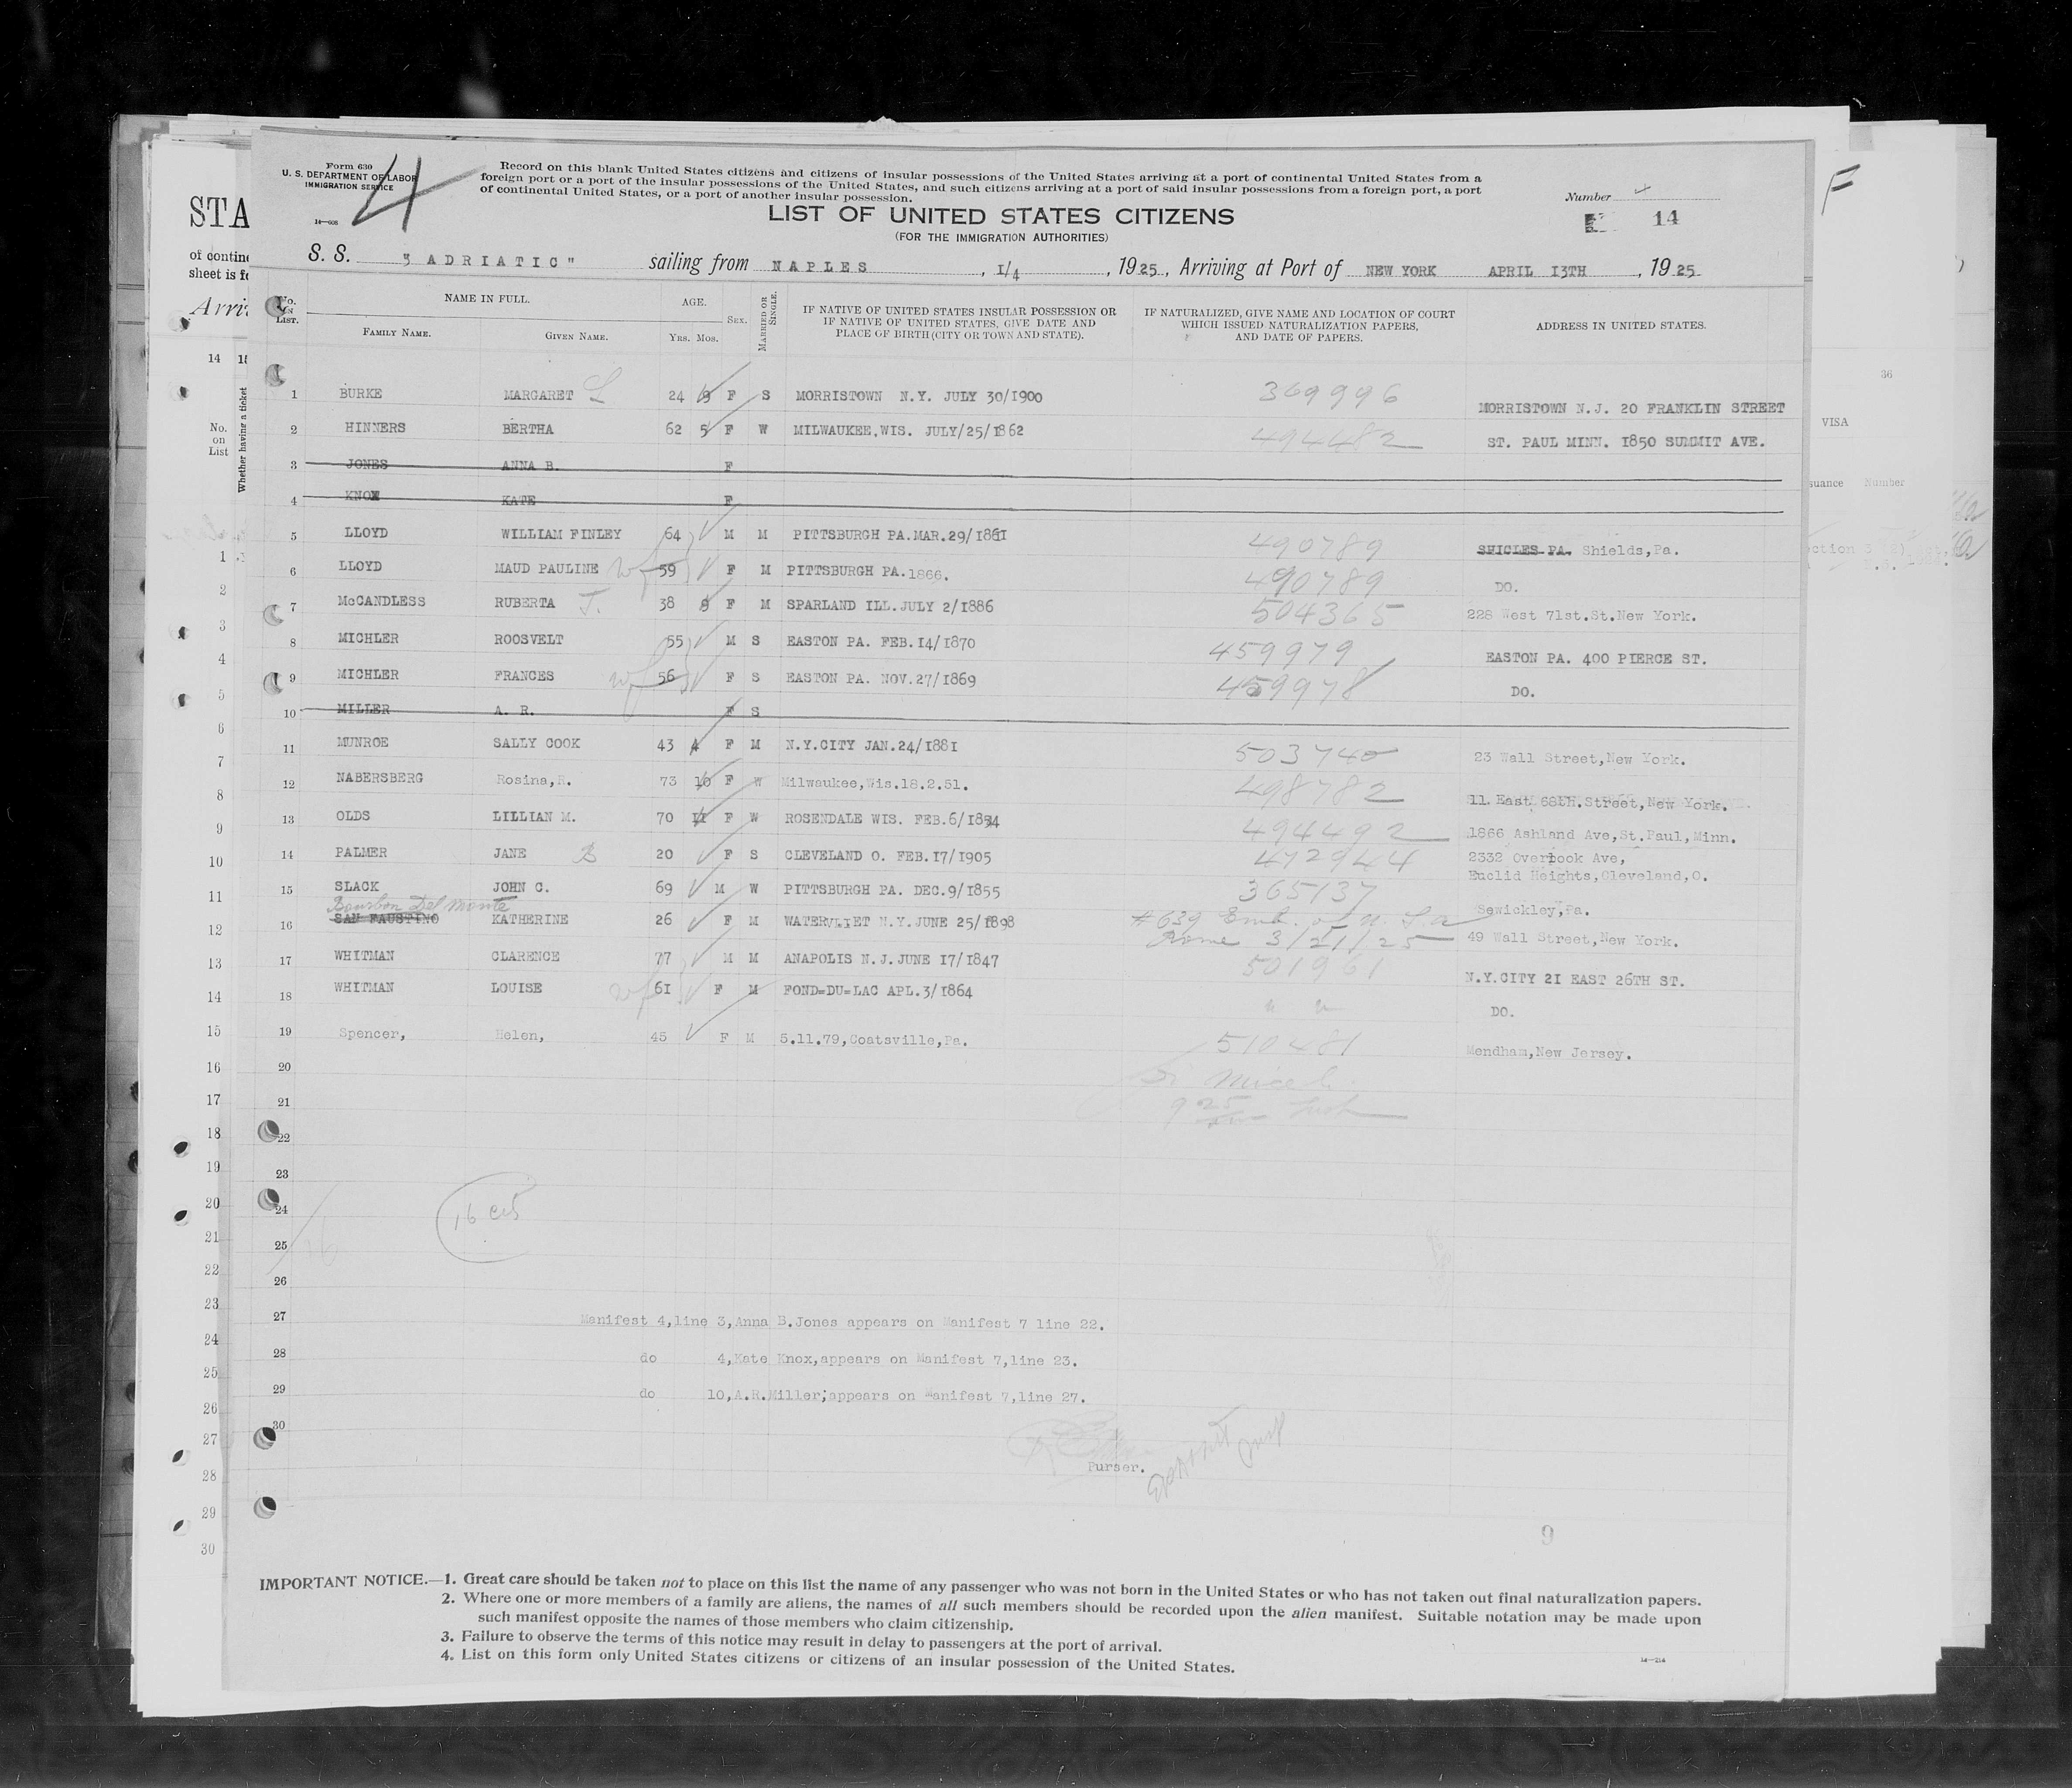 Form 630
U. S. DEPARTMENT OF LABOR
IMMIGRATION SERVICE
14—608
4
Record on this blank United States citizens and citizens of insular possessions of the United States arriving at a port of continental United States from a
foreign port or a port of the insular possessions of the United States, and such citizens arriving at a port of said insular possessions from a foreign port, a port
of continental United States, or a port of another insular possession.
LIST OF UNITED STATES CITIZENS
(FOR THE IMMIGRATION AUTHORITIES)
Number
14
S. S. "ADRIATIC" sailing from NAPLES, 1/4, 1925, Arriving at Port of NEW YORK APRIL 13TH, 1925
No. IN LIST. NAME IN FULL. FAMILY NAME. GIVEN NAME. AGE. Yrs. Mos. SEX. MARRIED OR SINGLE. IF NATIVE OF UNITED STATES INSULAR POSSESSION OR IF NATIVE OF UNITED STATES, GIVE DATE AND PLACE OF BIRTH (CITY OR TOWN AND STATE). IF NATURALIZED, GIVE NAME AND LOCATION OF COURT WHICH ISSUED NATURALIZATION PAPERS, AND DATE OF PAPERS. ADDRESS IN UNITED STATES.
1 BURKE MARGARET L 24 8 F S MORRISTOWN N.Y. JULY 30/1900 369996 MORRISTOWN N.J. 20 FRANKLIN STREET
2 HINNERS BERTHA 62 5 F W MILWAUKEE,WIS. JULY/25/1862 494482 ST. PAUL MINN. 1850 SUMMIT AVE.
3 JONES ANNA B. F
4 KNOX KATE F
5 LLOYD WILLIAM FINLEY 64 M M PITTSBURGH PA.MAR.29/1861 490789 SHICLES PA. Shields,Pa.
6 LLOYD MAUD PAULINE wf 59 F M PITTSBURGH PA.1866. 490789 DO.
7 McCANDLESS RUBERTA J. 38 9 F M SPARLAND ILL.JULY 2/1886 504365 228 West 71st.St.New York.
8 MICHLER ROOSVELT 55 M S EASTON PA. FEB.14/1870 459979 EASTON PA. 400 PIERCE ST.
9 MICHLER FRANCES wf 56 F S EASTON PA. NOV.27/1869 459978 DO.
10 MILLER A. R. F S
11 MUNROE SALLY COOK 43 4 F M N.Y.CITY JAN.24/1881 503740 23 Wall Street,New York.
12 NABERSBERG Rosina,R. 73 10 F W Milwaukee,Wis.18.2.51. 498782 11. East 68tH.Street,New York.
13 OLDS LILLIAN M. 70 11 F W ROSENDALE WIS. FEB.6/1854 494492 1866 Ashland Ave,St.Paul,Minn.
14 PALMER JANE B 20 F S CLEVELAND O. FEB.17/1905 472944 2332 Overbook Ave,
Euclid Heights,Cleveland,O.
15 SLACK JOHN C. 69 M W PITTSBURGH PA. DEC.9/1855 365137 Sewickley,Pa.
Bourbon Del Monte
16 SAN FAUSTINO KATHERINE 26 F M WATERVLIET N.Y.JUNE 25/1898 #639 Emb. of U.S.A Rome 3/21/25 49 Wall Street,New York.
17 WHITMAN CLARENCE 77 M M ANAPOLIS N.J.JUNE 17/1847 501961 N.Y.CITY 21 EAST 26TH ST.
18 WHITMAN LOUISE wf 61 F M FOND=DU=LAC APL.3/1864 " " DO.
19 Spencer, Helen, 45 F M 5.11.79,Coatsville,Pa. 510481 Mendham,New Jersey.
20
21
22
23
24
16 cits
25
26
27 Manifest 4,line 3,Anna B.Jones appears on Manifest 7 line 22.
28 do 4,Kate Knox,appears on Manifest 7,line 23.
29 do 10,A.R.Miller;appears on Manifest 7,line 27.
30
Purser.
9
IMPORTANT NOTICE.—1. Great care should be taken not to place on this list the name of any passenger who was not born in the United States or who has not taken out final naturalization papers.
2. Where one or more members of a family are aliens, the names of all such members should be recorded upon the alien manifest. Suitable notation may be made upon
such manifest opposite the names of those members who claim citizenship.
3. Failure to observe the terms of this notice may result in delay to passengers at the port of arrival.
4. List on this form only United States citizens or citizens of an insular possession of the United States.
14—214
STA
of contine
sheet is fo
Arri
14
No.
on
List
Whether having a ticket
1
2
3
4
5
6
7
8
9
10
11
12
13
14
15
16
17
18
19
20
21
22
23
24
25
26
27
28
29
30
F
36
VISA
suance Number